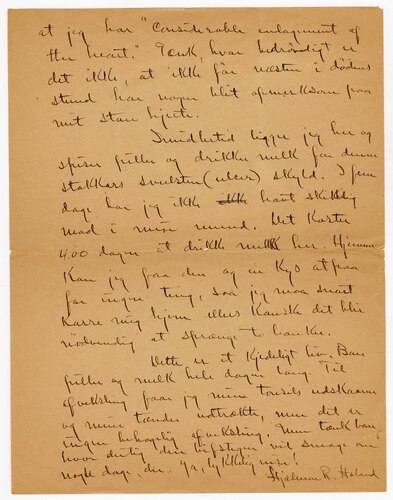 at jeg har "Considerable enlargement of
the heart." Tænk, hvor bedrøveligt er
det ikke, at ikke før næsten i dødens
stund har nogen blit opmerksom paa
mit store hjerte.
Imidlertid ligger jeg her og
spiser piller og drikker melk for denne
stakkars svulsten (ulcer) skyld. I fem
dage har jeg ikke havt skikkelig
mad i min mund. Det koster
4.00 dagen at drikke melk her. Hjemme
kan jeg faa den og en Kys atpaa
for ingen ting, saa jeg maa snart
karre mig hjem ellers kanske det blir
nødvendig at sprænge to banker.
Dette er et kjedeligt liv. Bare
piller og melk hele dagen lang. Til
afveksling faar jeg mine tonsils udskaaren
og mine tænder udtrække, men det er
ingen behagelig afveksling. Men tænk bare
hvor deilig den bifstegen vil smage om
nogle dage, du. Ja, lykkelig reise!
Hjalmar R. Holand